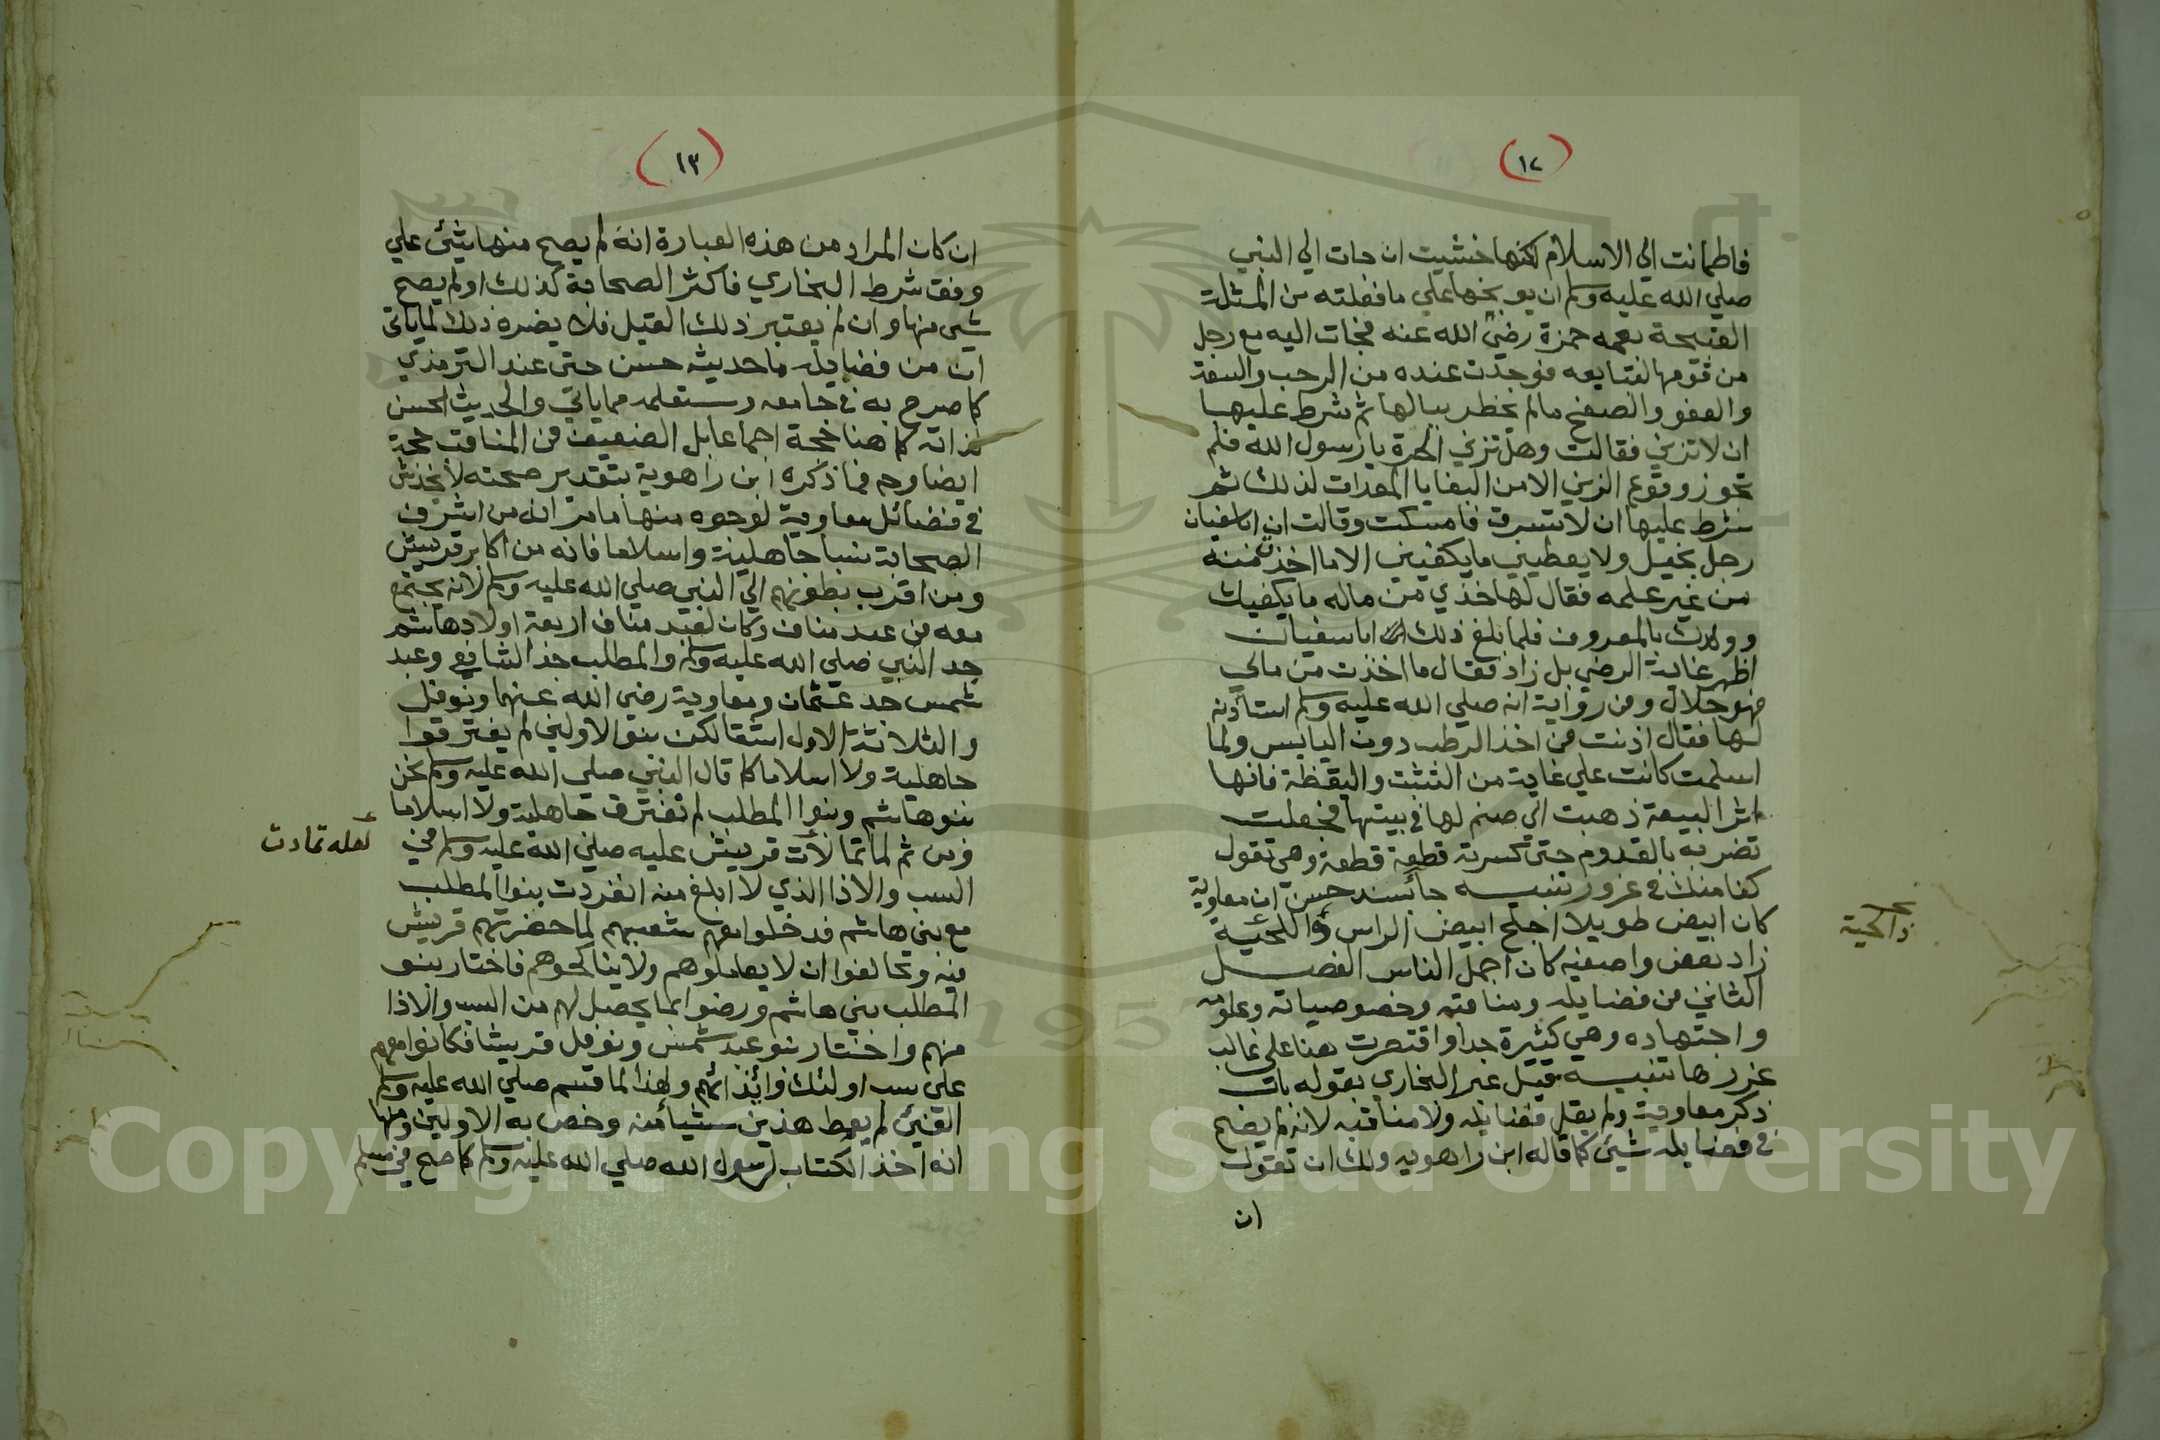 (١٢)
فاطمانت الي الاسلام لكنها خشيت ان جات الي النبي
صلي الله عليه وسلم ان يوبخها علي ما فعلته من المثلة
القبيحة بعمه حمزة رضي الله عنه فجات اليه مع رجل
من قومها لتبايعه فوجدت عنده من الرحب والسعة
والعفو والصفح مالم يخطر ببالها ثم شرط عليها
ان لا تزني فقالت وهل تزني الحرة يا رسول الله فلم
تجوز وقوع الزني الا من البغايا المعدات لذلك ثم
شرط عليها ان لا تسرق فامسكت وقالت ان ابا سفيان
رجل بخيل ولا يعطيني ما يكفيني الا ما اخذت منه
من غير علمه فقال لها خذي من ماله ما يكفيك
وولدك بالمعروف فلما بلغ ذلك ابا سفيان
اظهر غاية الرضي بل زاد فقال ما اخذت من مالي
فهو حلال وفي رواية انه صلي الله عليه وسلم استاذنه
لها فقال اذنت في اخذ الرطب دون اليابس ولما
اسلمت كانت علي غاية من التثبت واليقظة فانها
اثر البيعة ذهبت الي صنم لها في بيتها فجعلت
تضربه بالقدوم حتي كسرته قطعة قطعة وهي تقول
كنا منك في غرور تنبيه جا بسند حسن ان معاوية
كان ابيض طويلا اجلح ابيض الراس واللحية
واللحية
زاد بعض واصفيه كان اجمل الناس الفصل
الثاني في فضايله ومناقبه وخصوصياته وعلومه
واجتهاده وهي كثيرة جدا واقتصرت هنا علي غالب
غررها تنبيه قيل عبر البخاري بقوله باب
ذكر معاوية ولم يقل فضايله ولا مناقبه لانه لم يصح
في فضايله شيئ كما قاله ابن راهويه ولك ان تقول
ان
(١٣)
ان كان المراد من هذه العبارة انه لم يصح منها شيئ علي
وفق شرط البخاري فاكثر الصحابة كذلك اولم يصح
شي منها وان لم يعتبر ذلك القيل فلا يضره ذلك لما ياتي
ان من فضايله ما حديثه حسن حتي عند الترمذي
كما صرح به في جامعه وستعلمه مما ياتي والحديث الحسن
لذاته كما هنا حجة اجماعا بل الضعيف في المناقب حجة
ايضا وح فما ذكره ابن راهوية بتقدير صحته لا يخدش
في فضائل معاوية لوجوه منها ما مر انه من اشرف
الصحابة نسبا جاهلية واسلاما فانه من اكابر قريش
ومن اقرب بطونهم الي النبي صلي الله عليه وسلم لانه يجتمع
معه في عبد مناف وكان لعبد مناف اربعة اولاد هاشم
جد النبي صلي الله عليه وسلم والمطلب جد الشافعي وعبد
شمس جد عثمان ومعاوية رضي الله عنهما ونوفل
والثلاثة الاول اشقا لكن بنوا الاولين لم يفترقوا
جاهلية ولا اسلاما كما قال النبي صلي الله عليه وسلم نحن
بنو هاشم وبنوا المطلب لم نفترق جاهلية ولا اسلاما
ومن ثم لما تمالأت قريش عليه صلي الله عليه وسلم في
لعله تمادت
السب والاذا الذي لا ابلغ منه انفردت بنوا المطلب
مع بني هاشم فدخلوا معهم شعبهم لما حضرتهم قريش
فيه وتحالفوا ان لا يعاملوهم ولا يناكحوهم فاختار بنو
المطلب بني هاشم ورضوا بما يحصل لهم من السب والاذا
منهم واختار بنو عبد شمس ونوفل قريشا فكانوا معهم
علي سب اولئك وايذائهم ولهذا لما قسم صلي الله عليه وسلم
الفيئ لم يعط هذين شيأ منه وخص به الاولين ومنها
انه اخذ الكتاب لرسول الله صلي الله عليه وسلم كما صح في مسلم
Copyright © King Saud University
1957